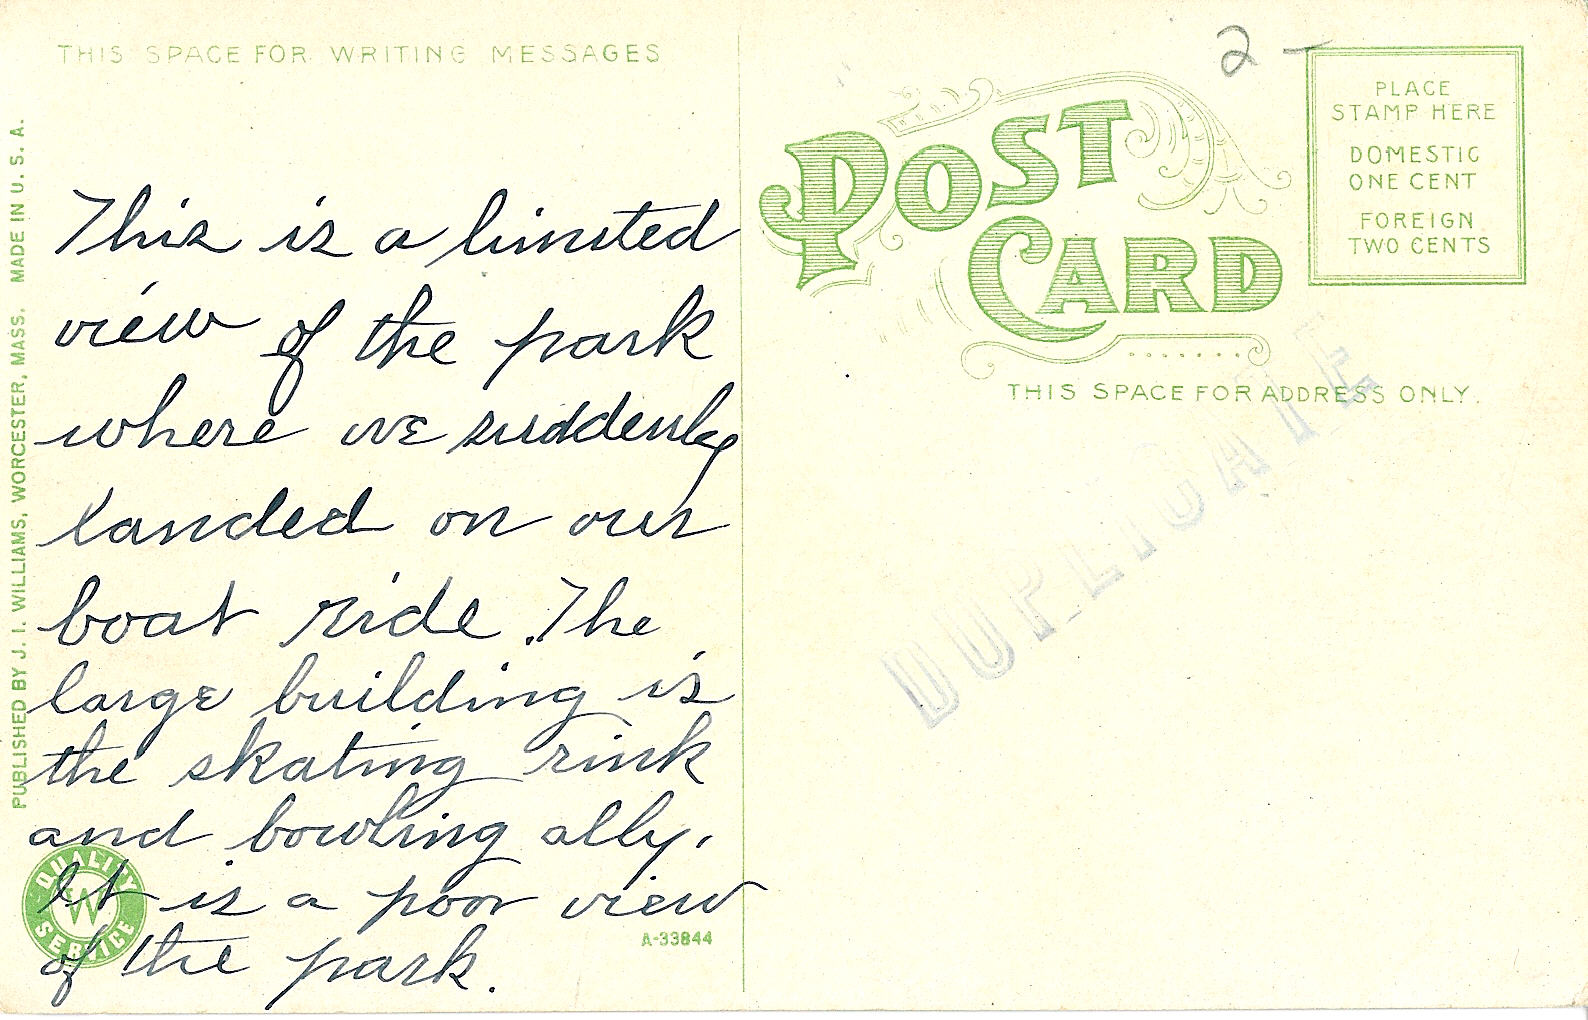 THIS SPACE FOR WRITING MESSAGES
This is a limited
view of the park
where we suddenly
landed on our
boat ride. The
large building is
the skating rink
and bowling ally.
It is a poor view
of the park.
PUBLISHED BY J. I. WILLIAMS, WORCESTER, MASS. MADE IN U. S. A.
QUALITY
W
SERVICE
A-33844
2 -
POST
CARD
PLACE
STAMP HERE
DOMESTIC
ONE CENT
FOREIGN
TWO CENTS
THIS SPACE FOR ADDRESS ONLY.
DUPLICATE